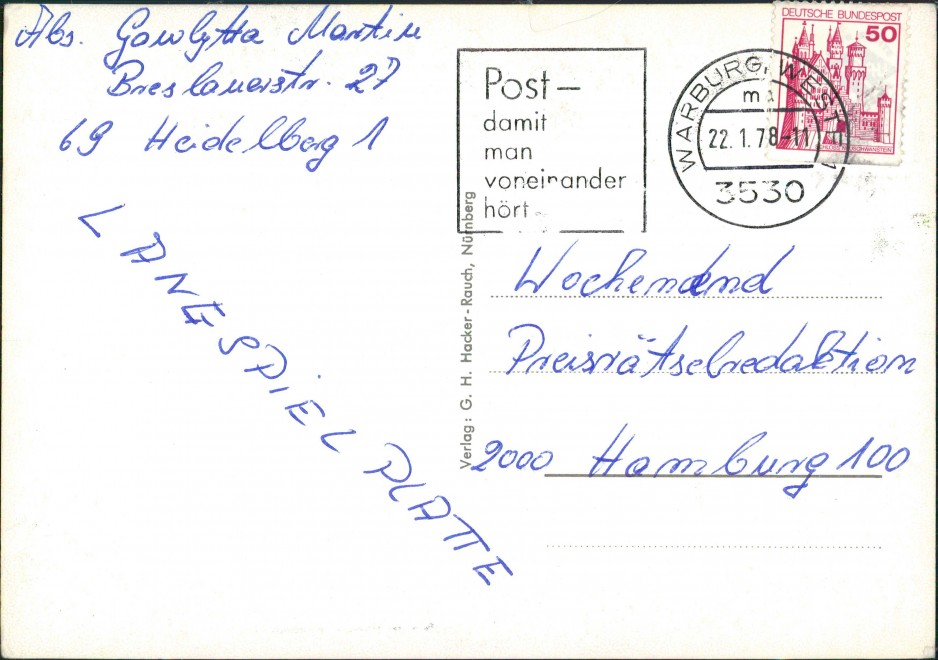 Abs. Gawlytta Martin
Breslauerstr. 27
69 Heidelberg 1
LANGSPIELPLATTE
Post–
damit
man
voneinander
hört.
WARBURG, WESTF 1
22.1.78-11
3530
DEUTSCHE BUNDESPOST
50
Verlag: G. H. Hacker-Rauch, Nürnberg
Wochenend
Preisrätselredaktion
2000 Hamburg 100